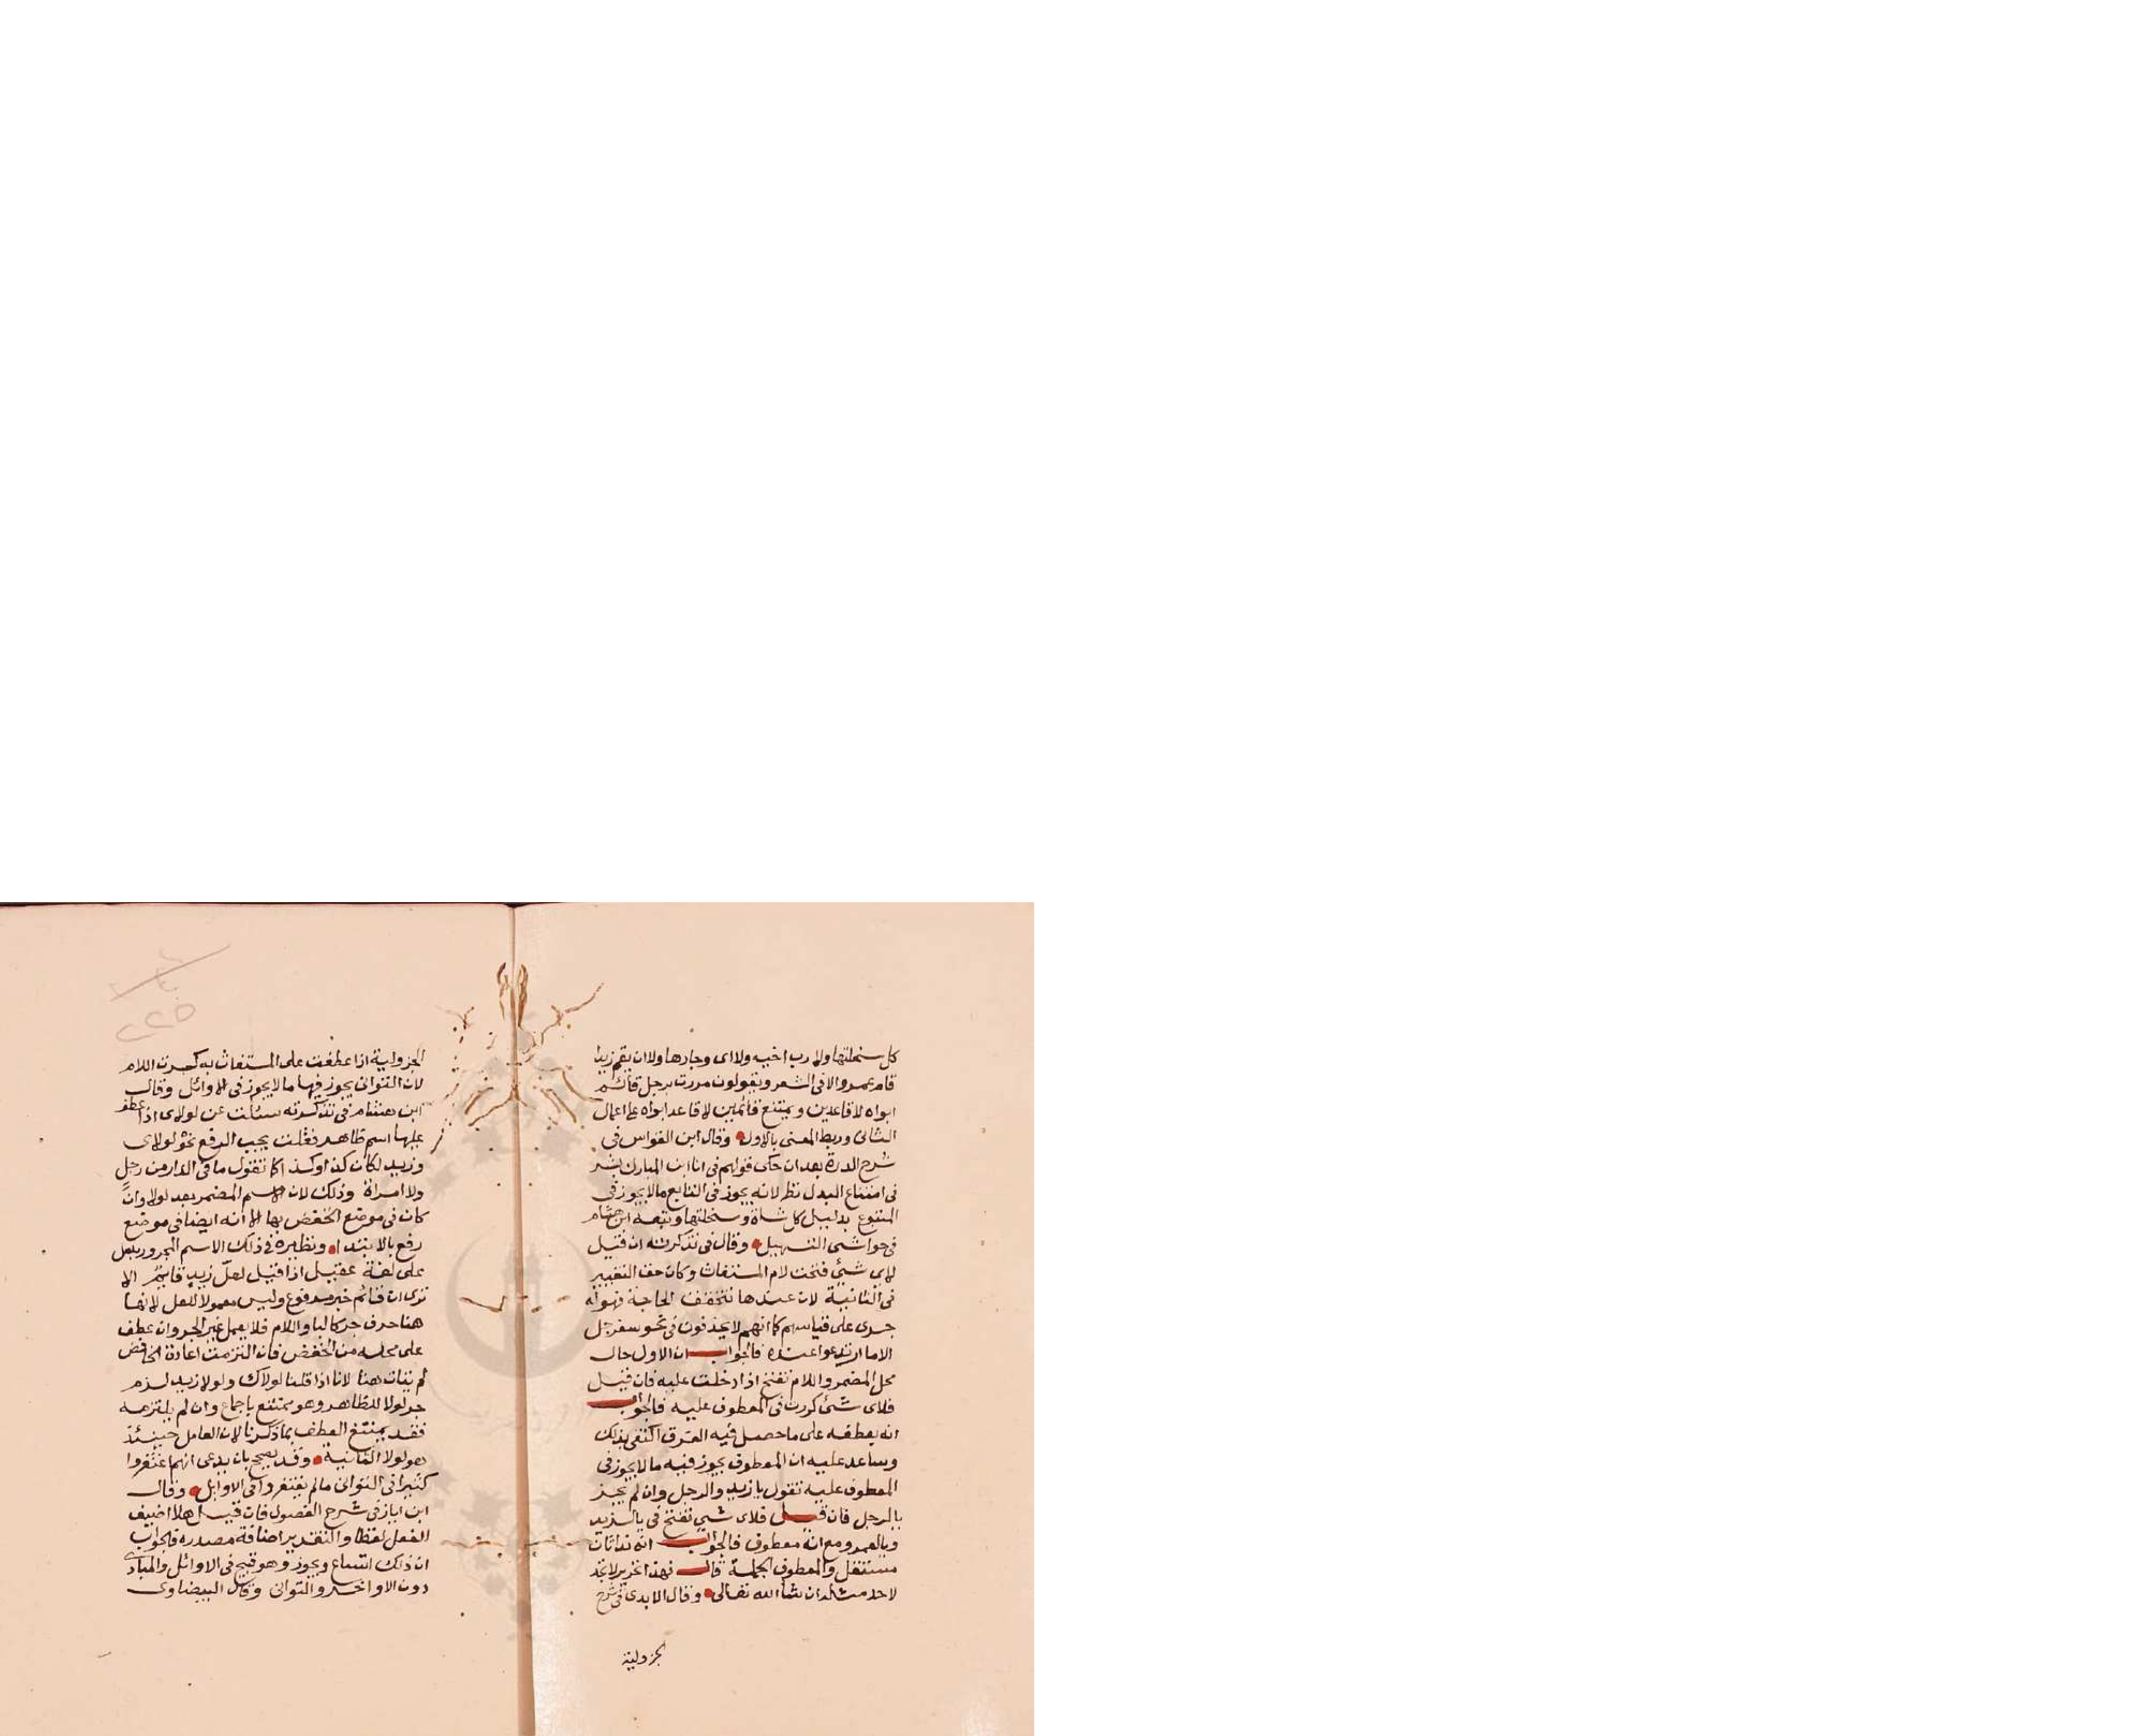 كل سخلتها ولا رب اخيه ولا اى وجارها ولا ان يقم زيد
قام عمرو الا فى الشعر ويقولون مررت برجل قائم
ابواه لا قاعدين ويمتنع قائمين لا قاعد ابواه على اعمال
الثانى وربط المعنى بالاول وقال ابن القواس فى
شرح الدرة بعد ان حكى قولهم فى انا ابن المبارك بشر
فى امتناع البدل نظر لانه يجوز فى التابع ما لا يجوز فى
المتبوع بدليل كل شاة وسخلتها وتبعه ابن هشام
فى حواشى التسهيل وقال فى تذكرته ان قيل
لاى شئ فتحت لام المستغاث وكان حق التغيير
فى الثانية لان عندها تتحقق الحاجة فهو انه
جرى على قياسهم كما انهم لا يحذفون فى نحو سفرجل
الا ما ارتدعوا عنده فالجواب ان الاول حال
محل المضمر واللام تفتح اذا دخلت عليه فان قيل
فلاى شئ كررت فى المعطوف عليه فالجواب
انه بعطفه على ما حصل فيه الفرق اكتفى بذلك
وساعد عليه ان المعطوف يجوز فيه ما لا يجوز فى
المعطوف عليه تقول يا زيد والرجل وان لم يجز
يالرجل فان قيل فلاى شئ تفتح فى يالزيد
ويالعمرو مع انه معطوف فالجواب انه نداثان
مستقل والمعطوف الجملة قال فهذا تحرير لا تجد
لاحد مثله ان شا الله تعالى وقال الابدى فى شرح
لجزولية
الجزولية اذا عطفت على المستغاث به كسرت اللام
لان الثوانى يجوز فيها ما لا يجوز فى الاوائل وقال
ابن هشام فى تذكرته سئلت عن لولاى اذا عطف
عليها اسم ظاهر فقلت يجب الرفع نحو لولاى
وزيد لكان كذا وكذا كما تقول ما فى الدار من رجل
ولا امراة وذلك لان الاسم المضمر بعد لولا وان
كان فى موضع الخفض بها الا انه ايضا فى موضع
رفع بالابتدا ونظيره فى ذلك الاسم المجرور بلعل
على لغة عقيل اذا قيل لعل زيد قائم الا
ترى ان قائم خبر مرفوع وليس معمولا للعل لانها
هنا حرف جر كالبا واللام فلا يعمل غير الجر وان عطف
على محله من الخفض فان التزمت اعادة الخافض
لم يتات هنا لانا اذا قلنا لولاك ولولا زيد لزم
جر لولا للظاهر وهو ممتنع باجماع وان لم يلتزمه
فقد يمتنع العطف بما ذكرنا لان العامل حينئذ
هو لولا الثانية وقد يصح بان يدعى انهم اغتفروا
كثيرا فى الثوانى ما لم يغتفروا فى الاوايل وقال
ابن اياز فى شرح الفصول فان قيل هلا اضيف
الفعل لفظا والتقدير اضافة مصدره فالجواب
ان ذلك اتساع ويجوز وهو قبيح فى الاوائل والمبادى
دون الاواخر والثوانى وقال البيضاوى